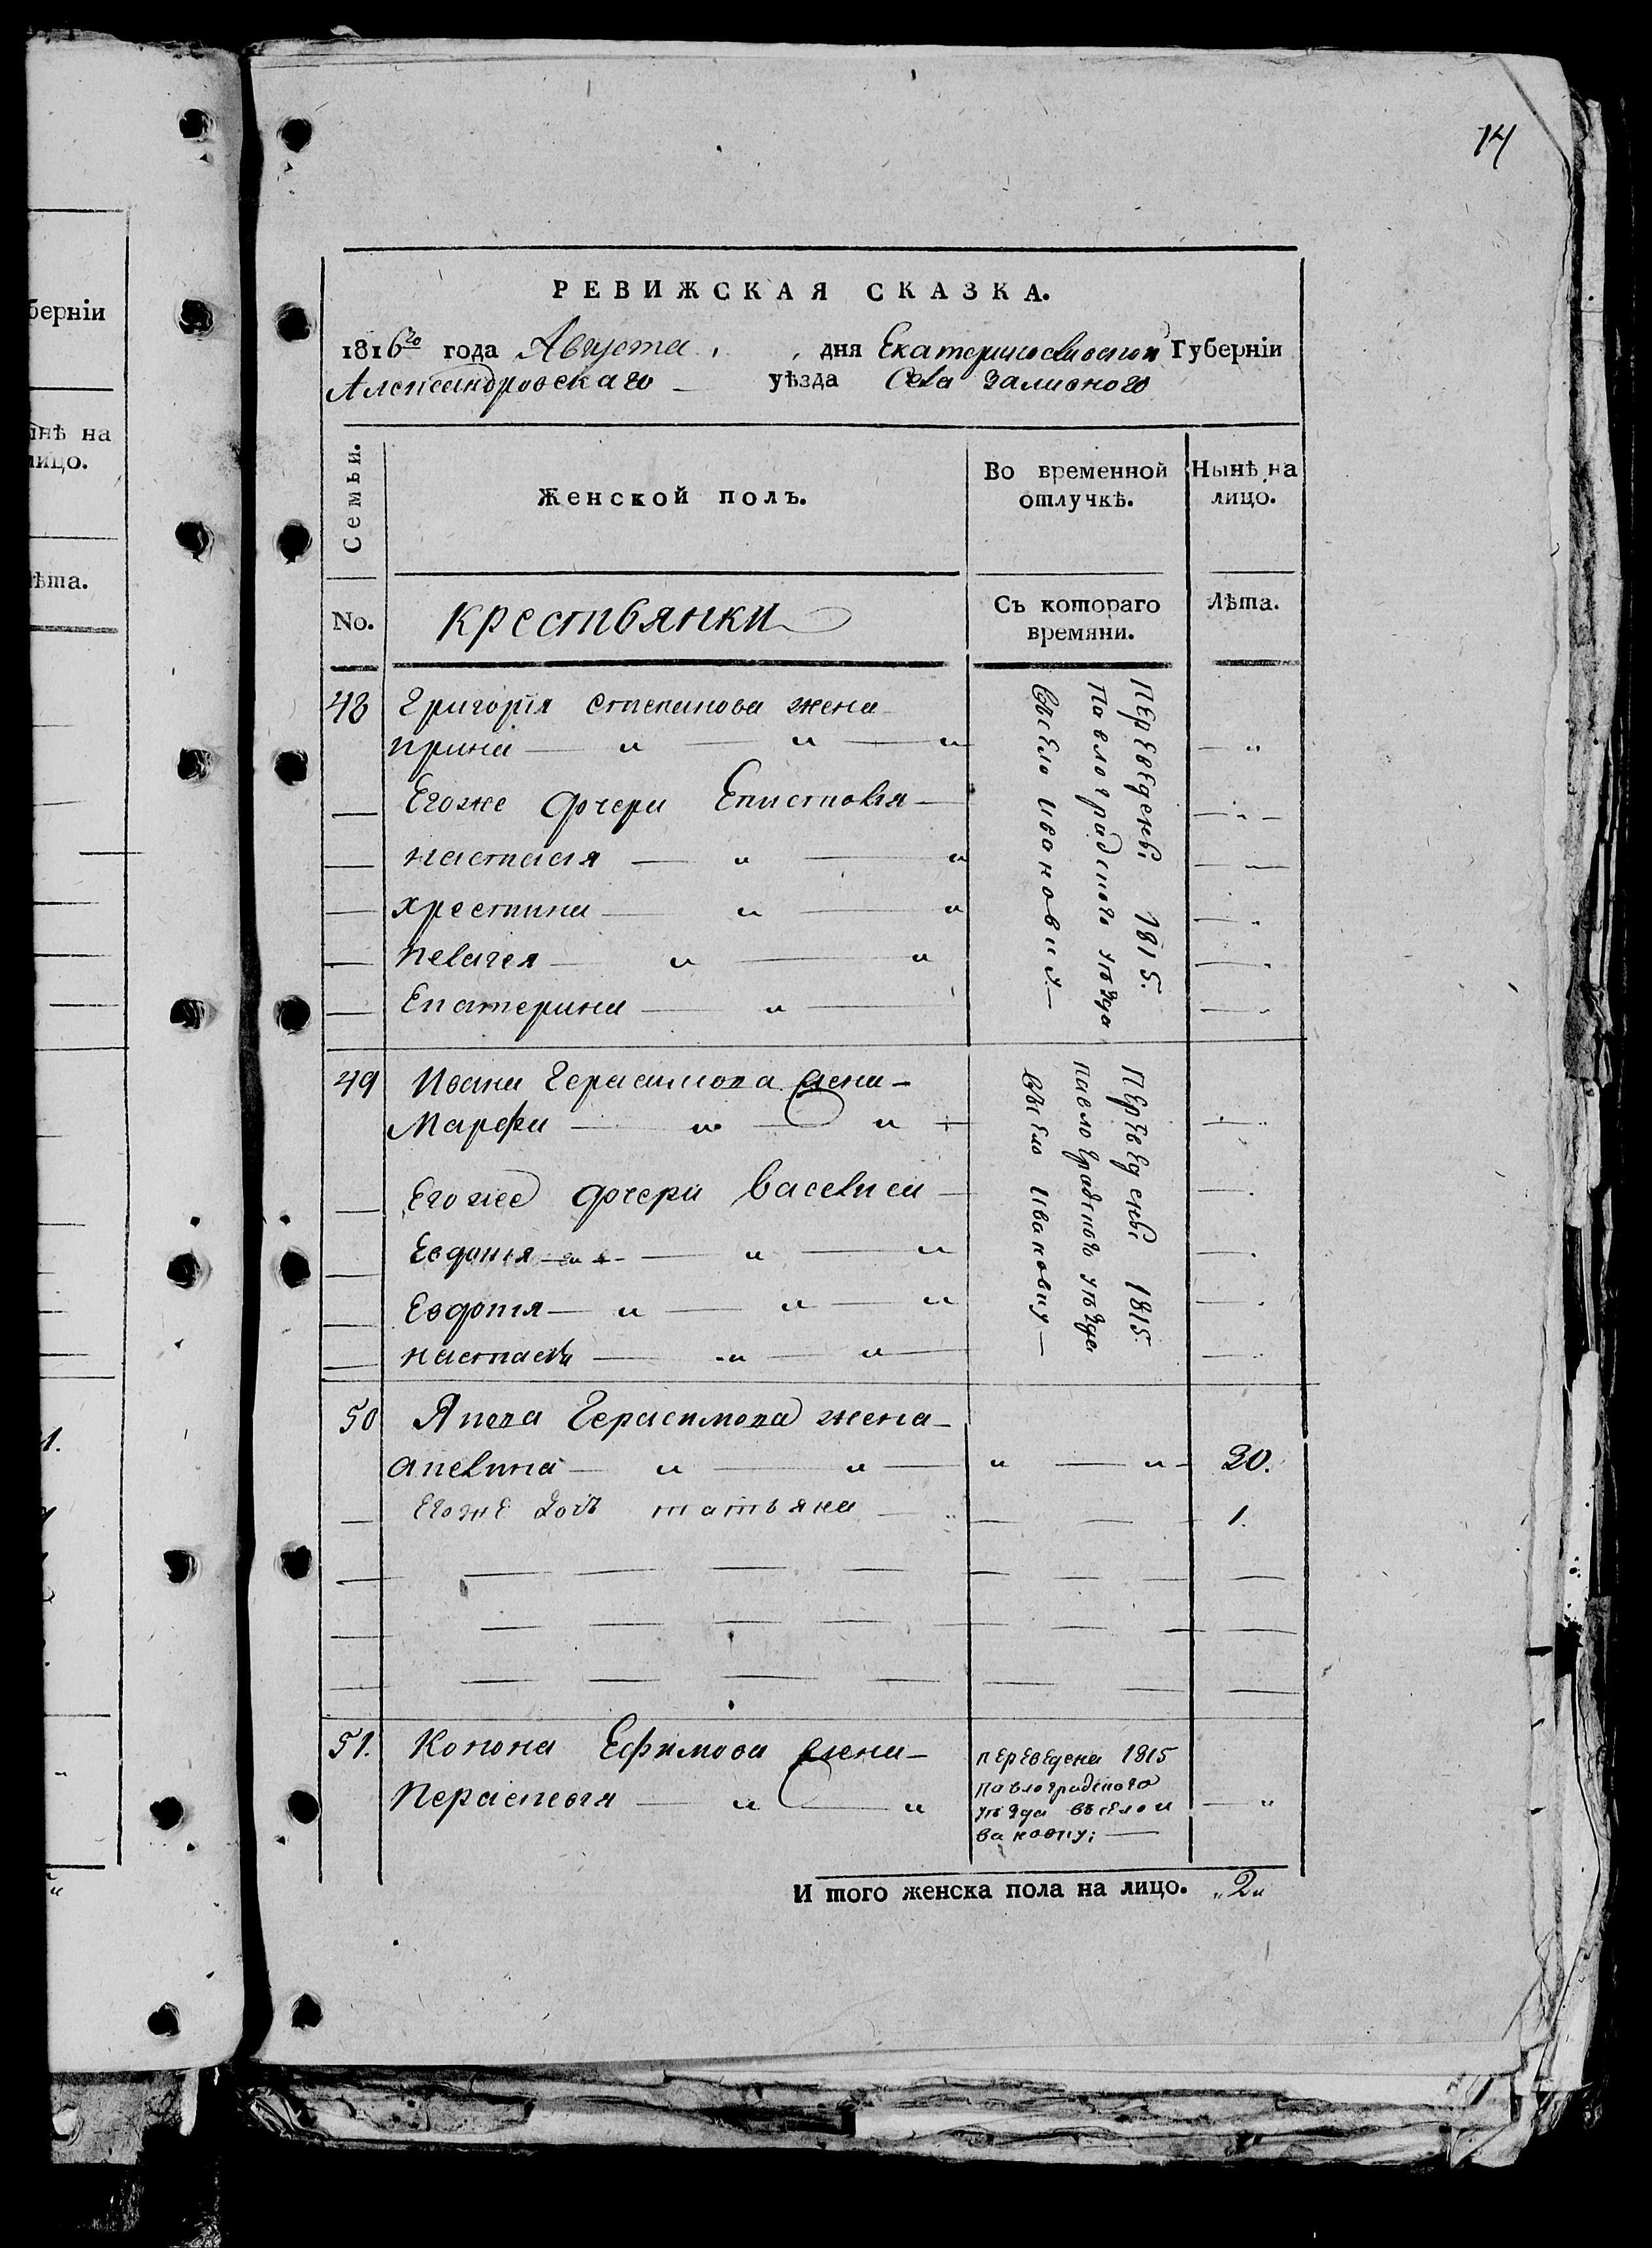 14
РЕВИЖСКАЯ СКАЗКА.
1816го года Августа дня Екатеринославской Губерніи
Александровскаго уѣзда Села Заливного
Семьи.
Женской полъ.
Во временной отлучкѣ.
Нынѣ на лицо.
No.
крестьянки
Съ котораго времяни.
Лѣта.
48 Григорія Степанова жена
Ирина — " — " — " — "
Егоже дочери Епистовия —
настасия — " — "
христина — " — "
Пелагея — " — "
Екатерина — " —
Переведены 1815.
Павлоградского уѣзда
Всело Ивановку.—
49 Ивана Герасимова жена —
Марфа — " — "
Егоже дочери Василиса —
Евдокия — " — "
Евдотия — " — " — "
настасия — " — "
Переведены 1815
Павлоградского уѣзда
Всело Ивановку —
50 Якова Герасимова жена —
Акелина — " — " — " — " — 20.
Егоже дочь татьяна — 1.
51. Конона Ефимова жена —
Параскевия — " — " — "
переведена 1815
Павлоградского
уѣзда всело и
вановку; —
И того женска пола на лицо. „2„
берніи
инѣ на
лицо.
ѣта.